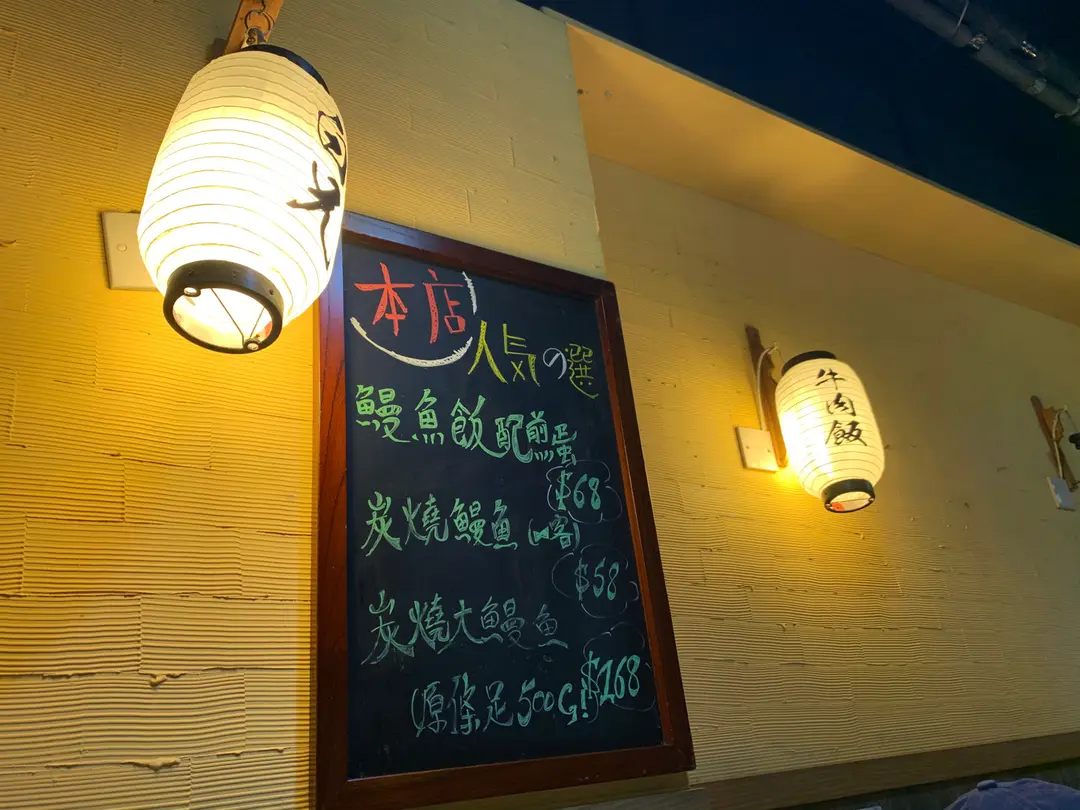 本店
人気の選
鰻魚飯配煎蛋
$68
炭燒鰻魚(一客)
$58
炭燒大鰻魚
原條足500G!
$168
牛肉飯